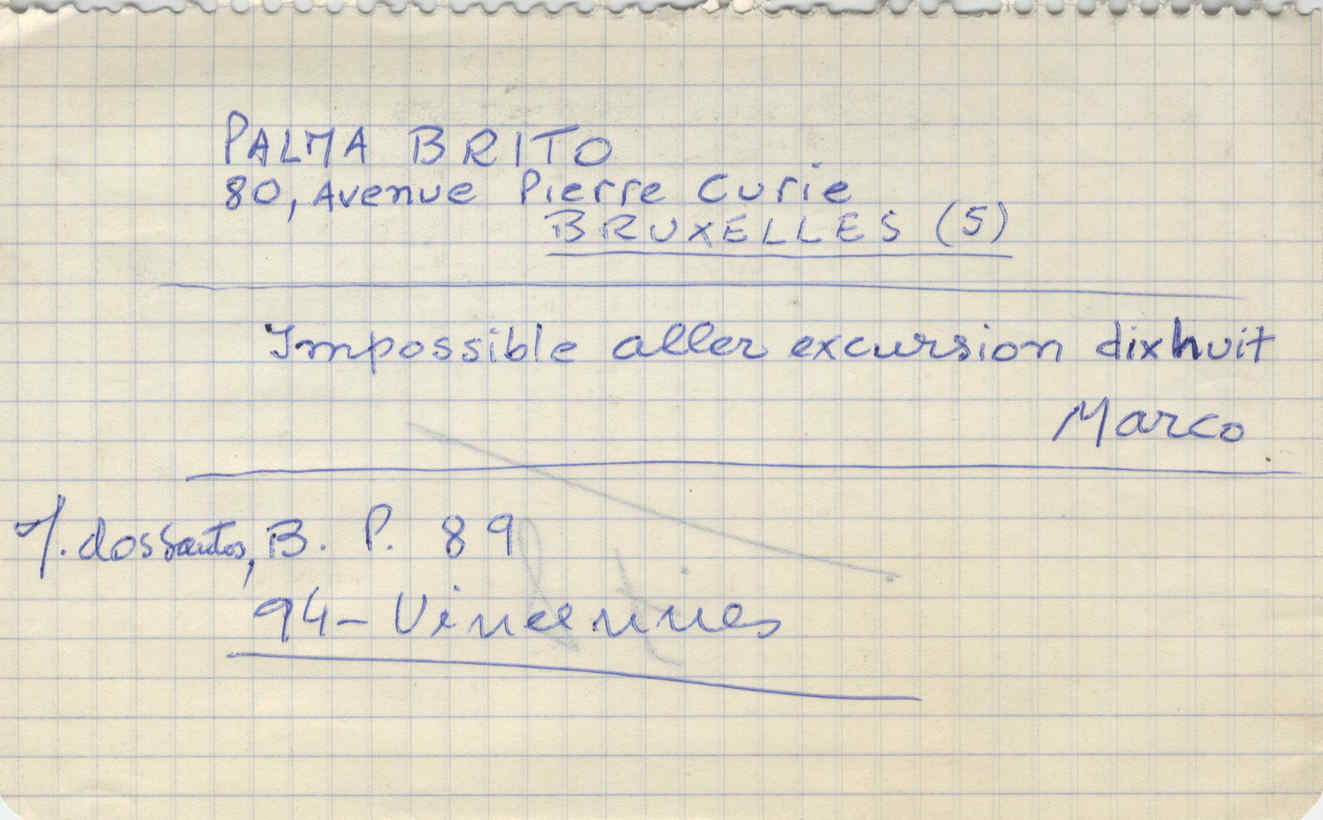 PALMA BRITO
80, Avenue Pierre Curie
BRUXELLES (5)
Impossible aller excursion dixhuit
Marco
J. dos Santos, B. P. 89
94- Vincennes